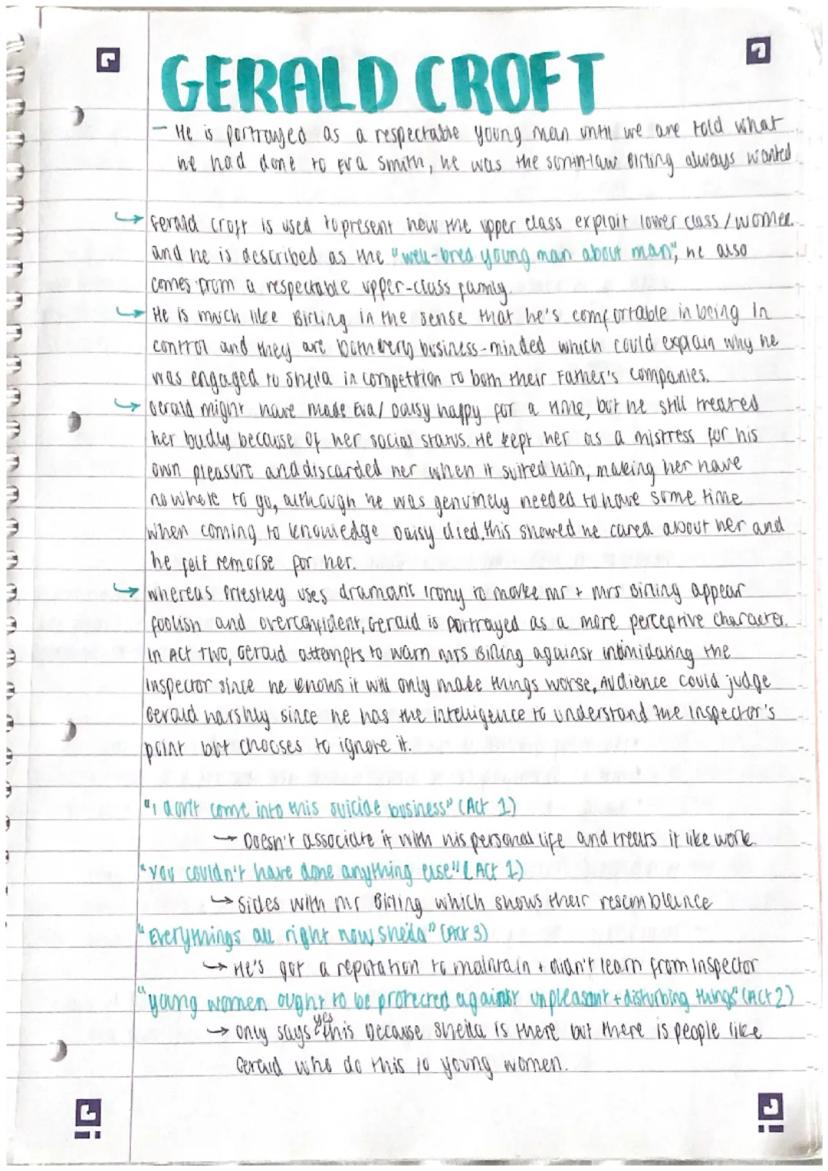 GERALD CROFT
- He is portrayed as a respectable young man until we are told what
he had done to Eva Smith, he was the son-in-law Birling always wanted
Gerald Croft is used to present how the upper class exploit lower class / women
and he is described as the "well-bred young man about man", he also
comes from a respectable upper-class family.
He is much like Birling in the sense that he's comfortable in being in
control and they are both very business-minded which could explain why he
was engaged to Sheila in competition to both their Father's companies.
Gerald might have made Eva / Daisy happy for a time, but he still treated
her badly because of her social status. He kept her as a mistress for his
own pleasure and discarded her when it suited him, making her have
nowhere to go, although he was genuinely needed to have some time
when coming to knowledge Daisy died, this showed he cared about her and
he felt remorse for her.
whereas Priestley uses dramatic irony to make mr + mrs Birling appear
foolish and overconfident, Gerald is portrayed as a more perceptive character.
In Act Two, Gerald attempts to warn mrs Birling against intimidating the
inspector since he knows it will only make things worse, Audience could judge
Gerald harshly since he has the intelligence to understand the inspector's
point but chooses to ignore it.
"I don't come into this suicide business" (Act 1)
→ Doesn't associate it with his personal life and treats it like work
"You couldn't have done anything else" (Act 1)
→ Sides with mr Birling which shows their resemblance
"Everythings all right now Sheila" (Act 3)
→ He's got a reputation to maintain + didn't learn from inspector
"young women ought to be protected against unpleasant + disturbing things" (Act 2)
→ only says yes this because Sheila is there but there is people like
Gerald who do this to young women.